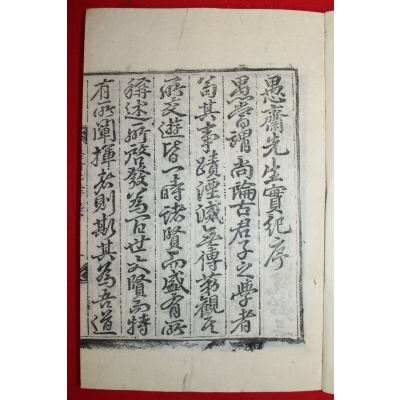 愚齋先生實紀序
愚嘗謂尚論古君子之學者
苟其事蹟湮滅無傳苐觀其
所交遊皆一時諸賢而盛有所
稱述所啓發爲百世之大賢而特
有所闡揮者則斯其爲吾道